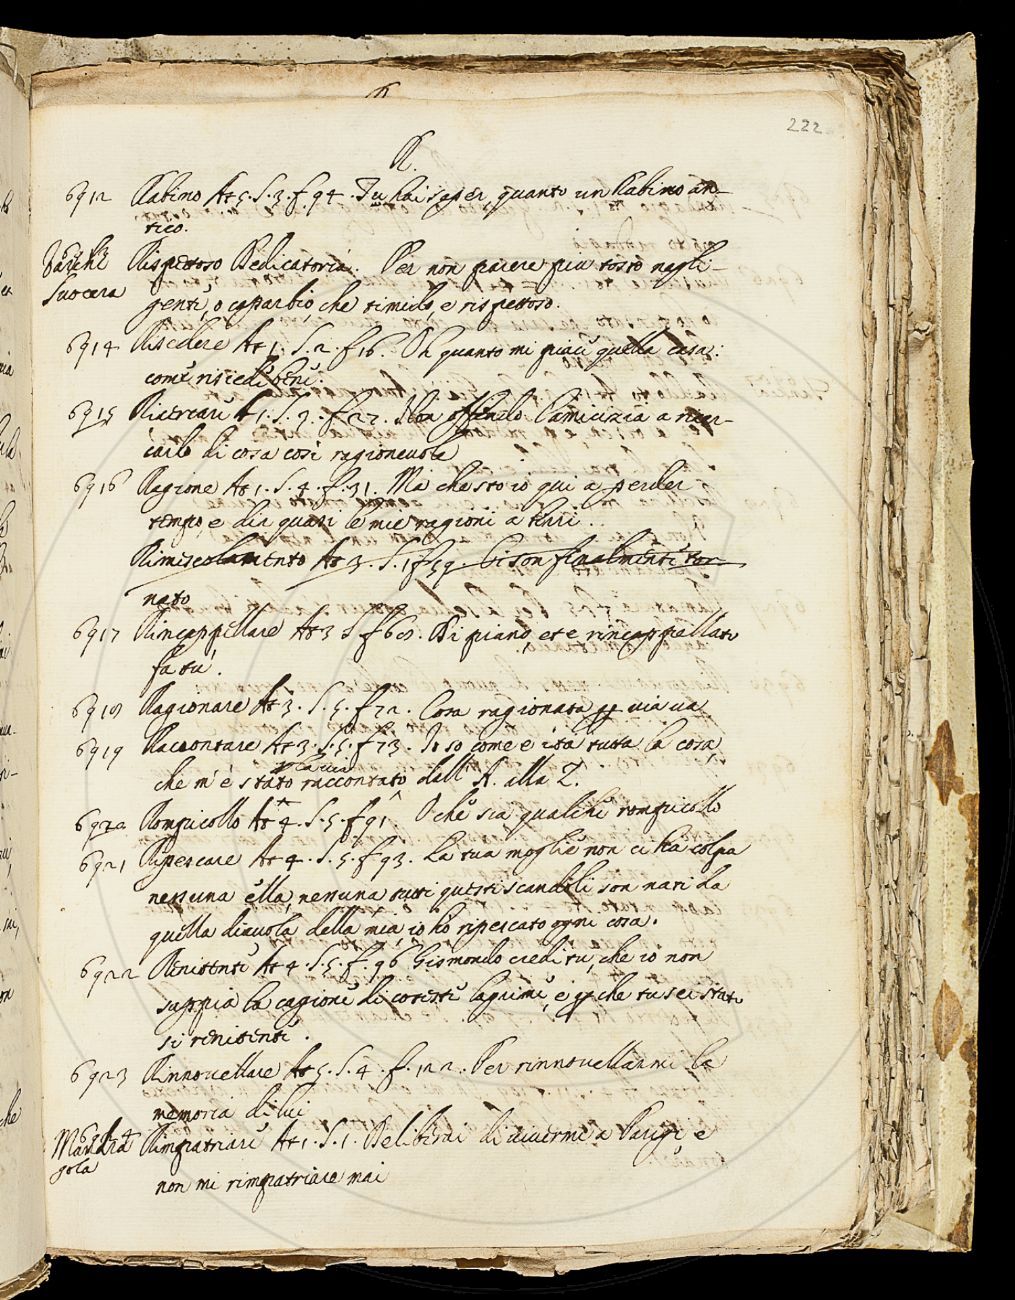 222
R.
6912 Rabino At 5. S. 3. f. 94. Tu hai saper, quanto un Rabino an-
tico.
Suocera Rispettoso Dedicatoria. Per non parere piu tosto negli-
genti, o caparbio che timido, e rispettoso.
6914 Risedere At 1. S. 2. f 16. Oh quanto mi piace quella casa:
come risiede bene.
6915 Ricercare At 1. S. 3. f. 27. Non offendo l'amicizia a ricer-
carlo di cosa così ragionevole
6916 Ragione At 1. S. 4. f. 31. Ma che sto io qui a perder
tempo, e dir quasi le mie ragioni a birri.
Rimescolamento At 3. S. 1 f 59 Ci son finalmente tor-
nato
6917 Rincappellare At 3 S f 60. Di piano, et e rincappellato
fa tu.
6918 Ragionare At 3. S. 5. f 72. Cosa ragionata per via va
6919 Raccontare At 3. S. 5. f 73. Io so come è ita tutta la cosa,
che m'è stato raccontato dall'A. alla Z.
6920 Rompicollo At 4. S. 5. f 91. O che sia qualche rompicollo
6921 Ripescare At 4. S. 5. f 93. La tua moglie non ci ha colpa
nessuna ella, nessuna tutti questi scandoli son nati da
quella diavola della mia, io ho ripescato ogni cosa.
6922 Renitente At 4. S. 5. f. 96 Gismondo credi tu, che io non
sappia la cagione di coteste lagrime, e perche tu sei stato
si renitente.
6923 Rinnovellare At 5. S. 4. f. 122. Per rinnovellarmi la
memoria di lui
Mandra-
gola Rimpatriare At 1. S. 1. Deliberai di vivermi a Parigi, e
non mi rimpatriare mai